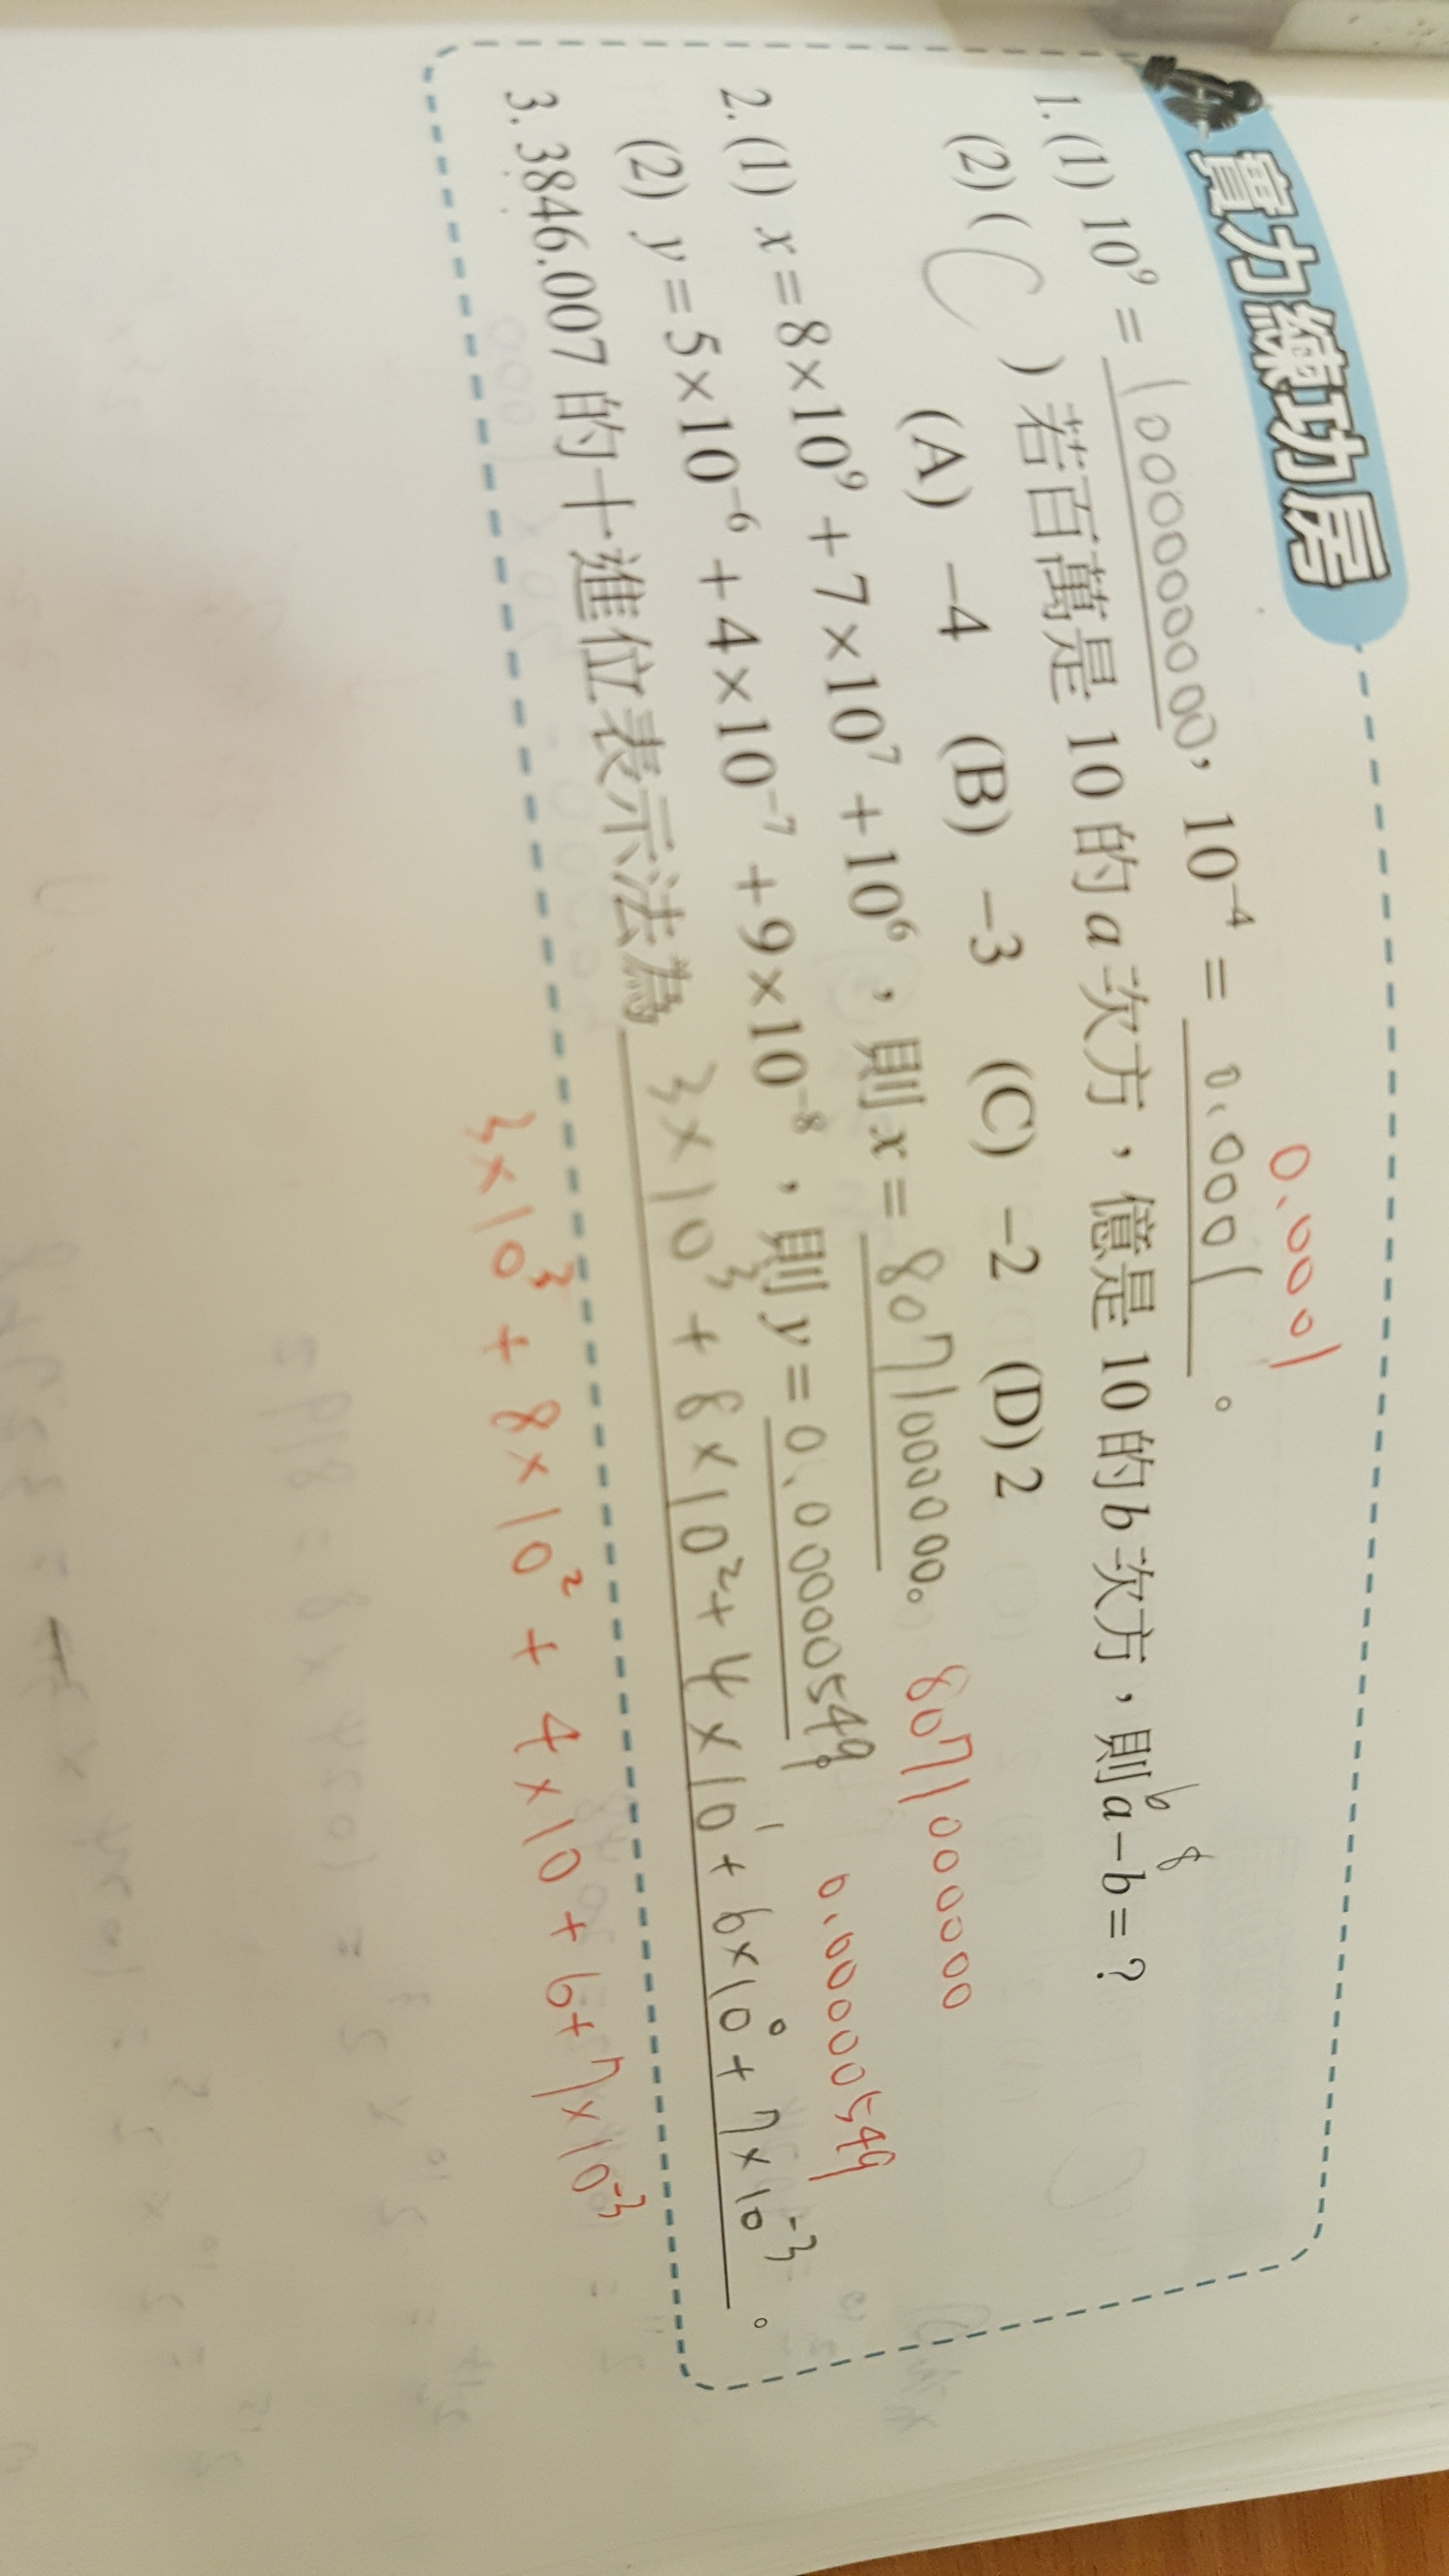 實力練功房
0.0001
1. (1) 10⁹ = 1000000000, 10⁻⁴ = 0.0001。
6 8
(2) ( C ) 若百萬是 10 的 a 次方,億是 10 的 b 次方,則 a−b=?
(A) −4 (B) −3 (C) −2 (D) 2
2. (1) x=8×10⁹+7×10⁷+10⁶,則 x= 8071000000。 8071000000
(2) y=5×10⁻⁶+4×10⁻⁷+9×10⁻⁸,則 y= 0.00000549。 0.00000549
3. 3846.007 的十進位表示法為 3×10³+8×10²+4×10¹+6×10⁰+7×10⁻³。
3×10³+8×10²+4×10+6+7×10⁻³